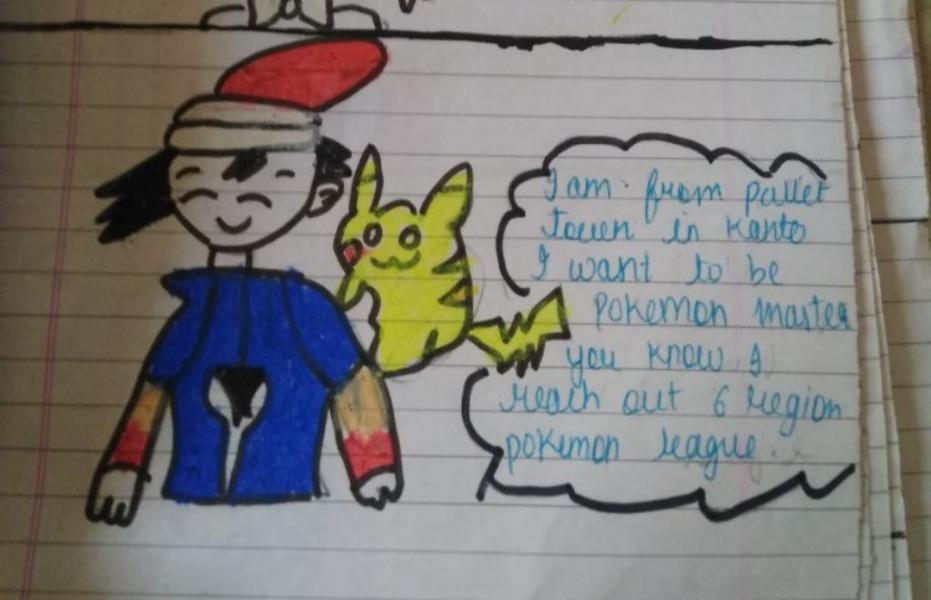 I am from pallet
town in Kanto
I want to be
pokemon master
you know I
reach out 6 region
pokemon league.